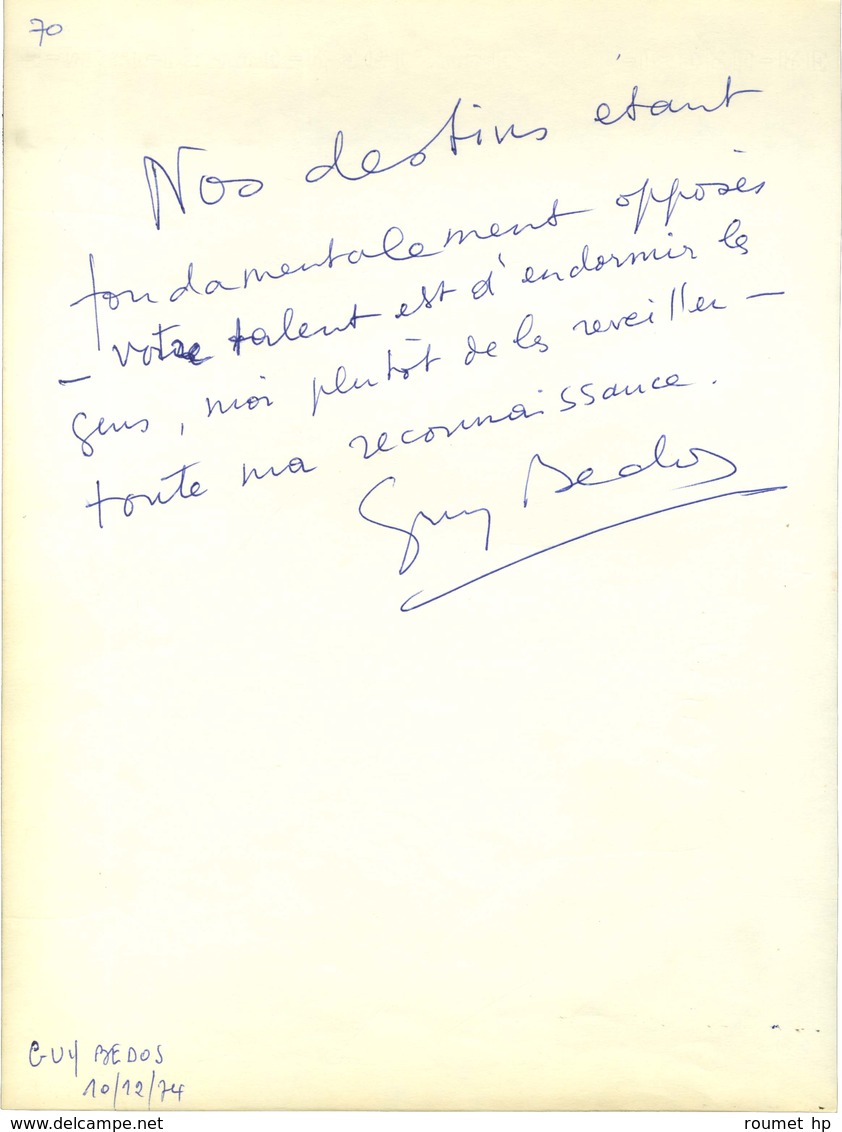 70
Nos destins étant
fondamentalement opposés
– votre talent est d'endormir les
gens, moi plutôt de les reveiller –
toute ma reconnaissance.
Guy Bedos
GUY BEDOS
10/12/74
www.delcampe.net
roumet hp